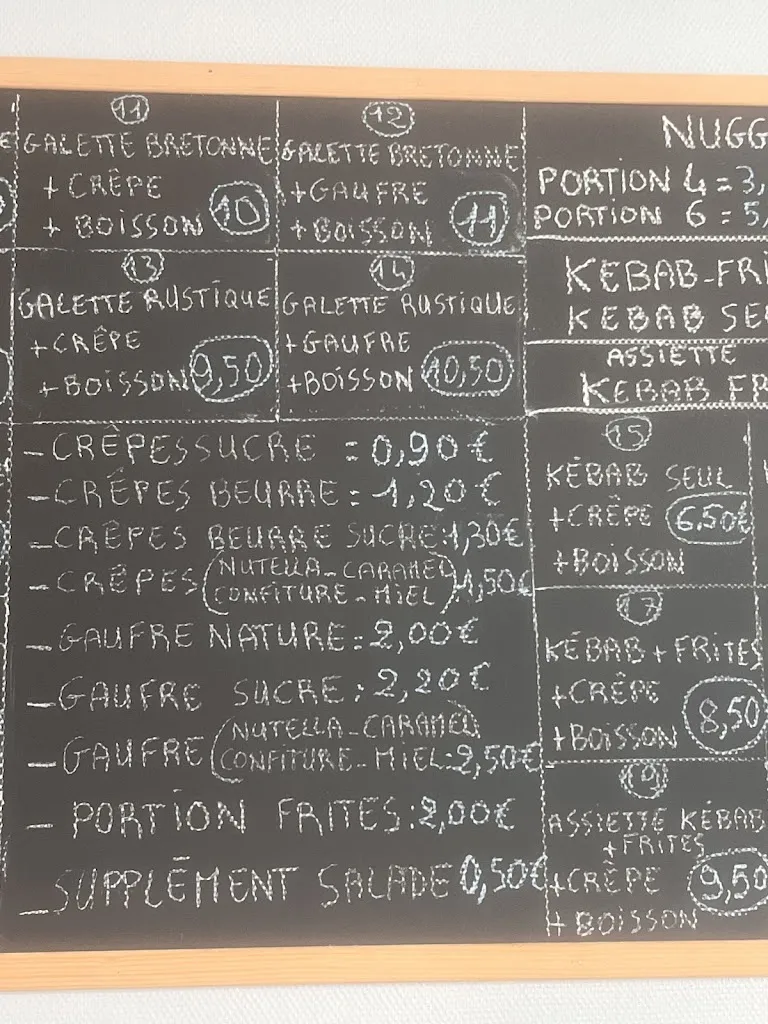 11
GALETTE BRETONNE
+ CRÊPE
+ BOISSON 10
12
GALETTE BRETONNE
+GAUFRE
+BOISSON 11
13
GALETTE RUSTIQUE
+CRÊPE
+BOISSON 9,50
14
GALETTE RUSTIQUE
+GAUFRE
+BOISSON 10,50
- CRÊPES SUCRE = 0,90€
- CRÊPES BEURRE: 1,20€
- CRÊPES BEURRE SUCRE: 1,30€
- CRÊPES (NUTELLA - CARAMEL
CONFITURE - MIEL) 1,50€
- GAUFRE NATURE: 2,00€
- GAUFRE SUCRE: 2,20€
- GAUFRE (NUTELLA - CARAMEL
CONFITURE - MIEL: 2,50€
- PORTION FRITES: 2,00€
- SUPPLÉMENT SALADE 0,50€
NUGG
PORTION 4 = 3,
PORTION 6 = 5,
KEBAB-FRI
KEBAB SEU
ASSIETTE
KEBAB FR
15
KÉBAB SEUL
+CRÊPE 6,50€
+BOISSON
17
KÉBAB + FRITES
+CRÊPE
+BOISSON 8,50
19
ASSIETTE KÉBAB
+FRITES
+CRÊPE 9,50
+ BOISSON